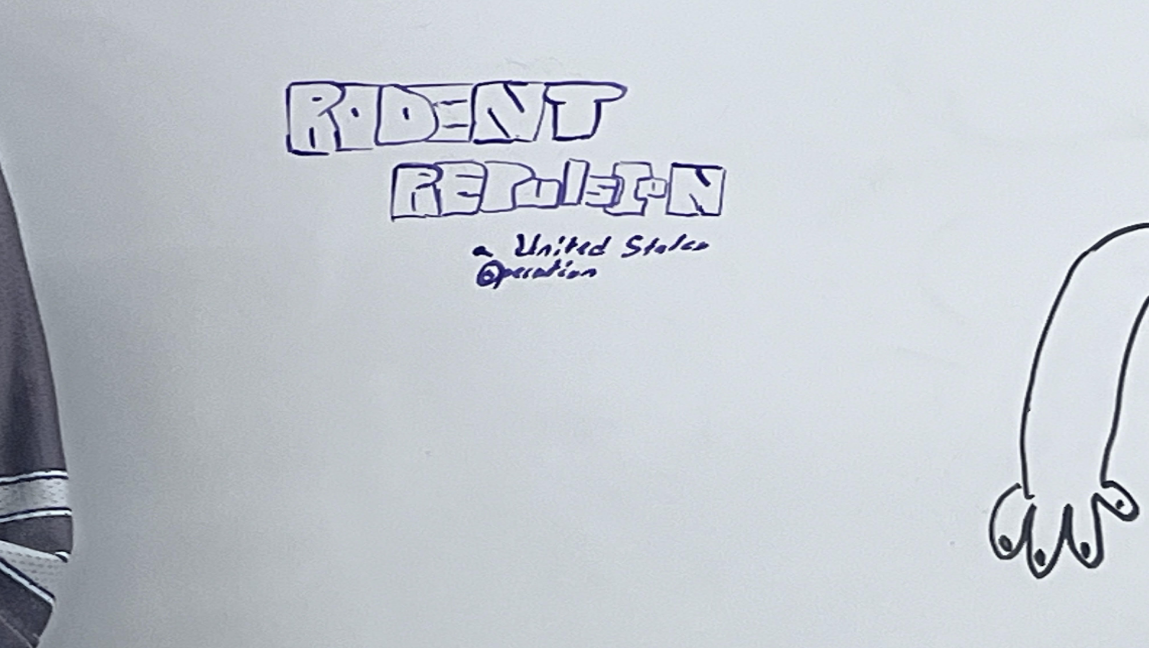 RODENT
REPulsION
a United States
Operation